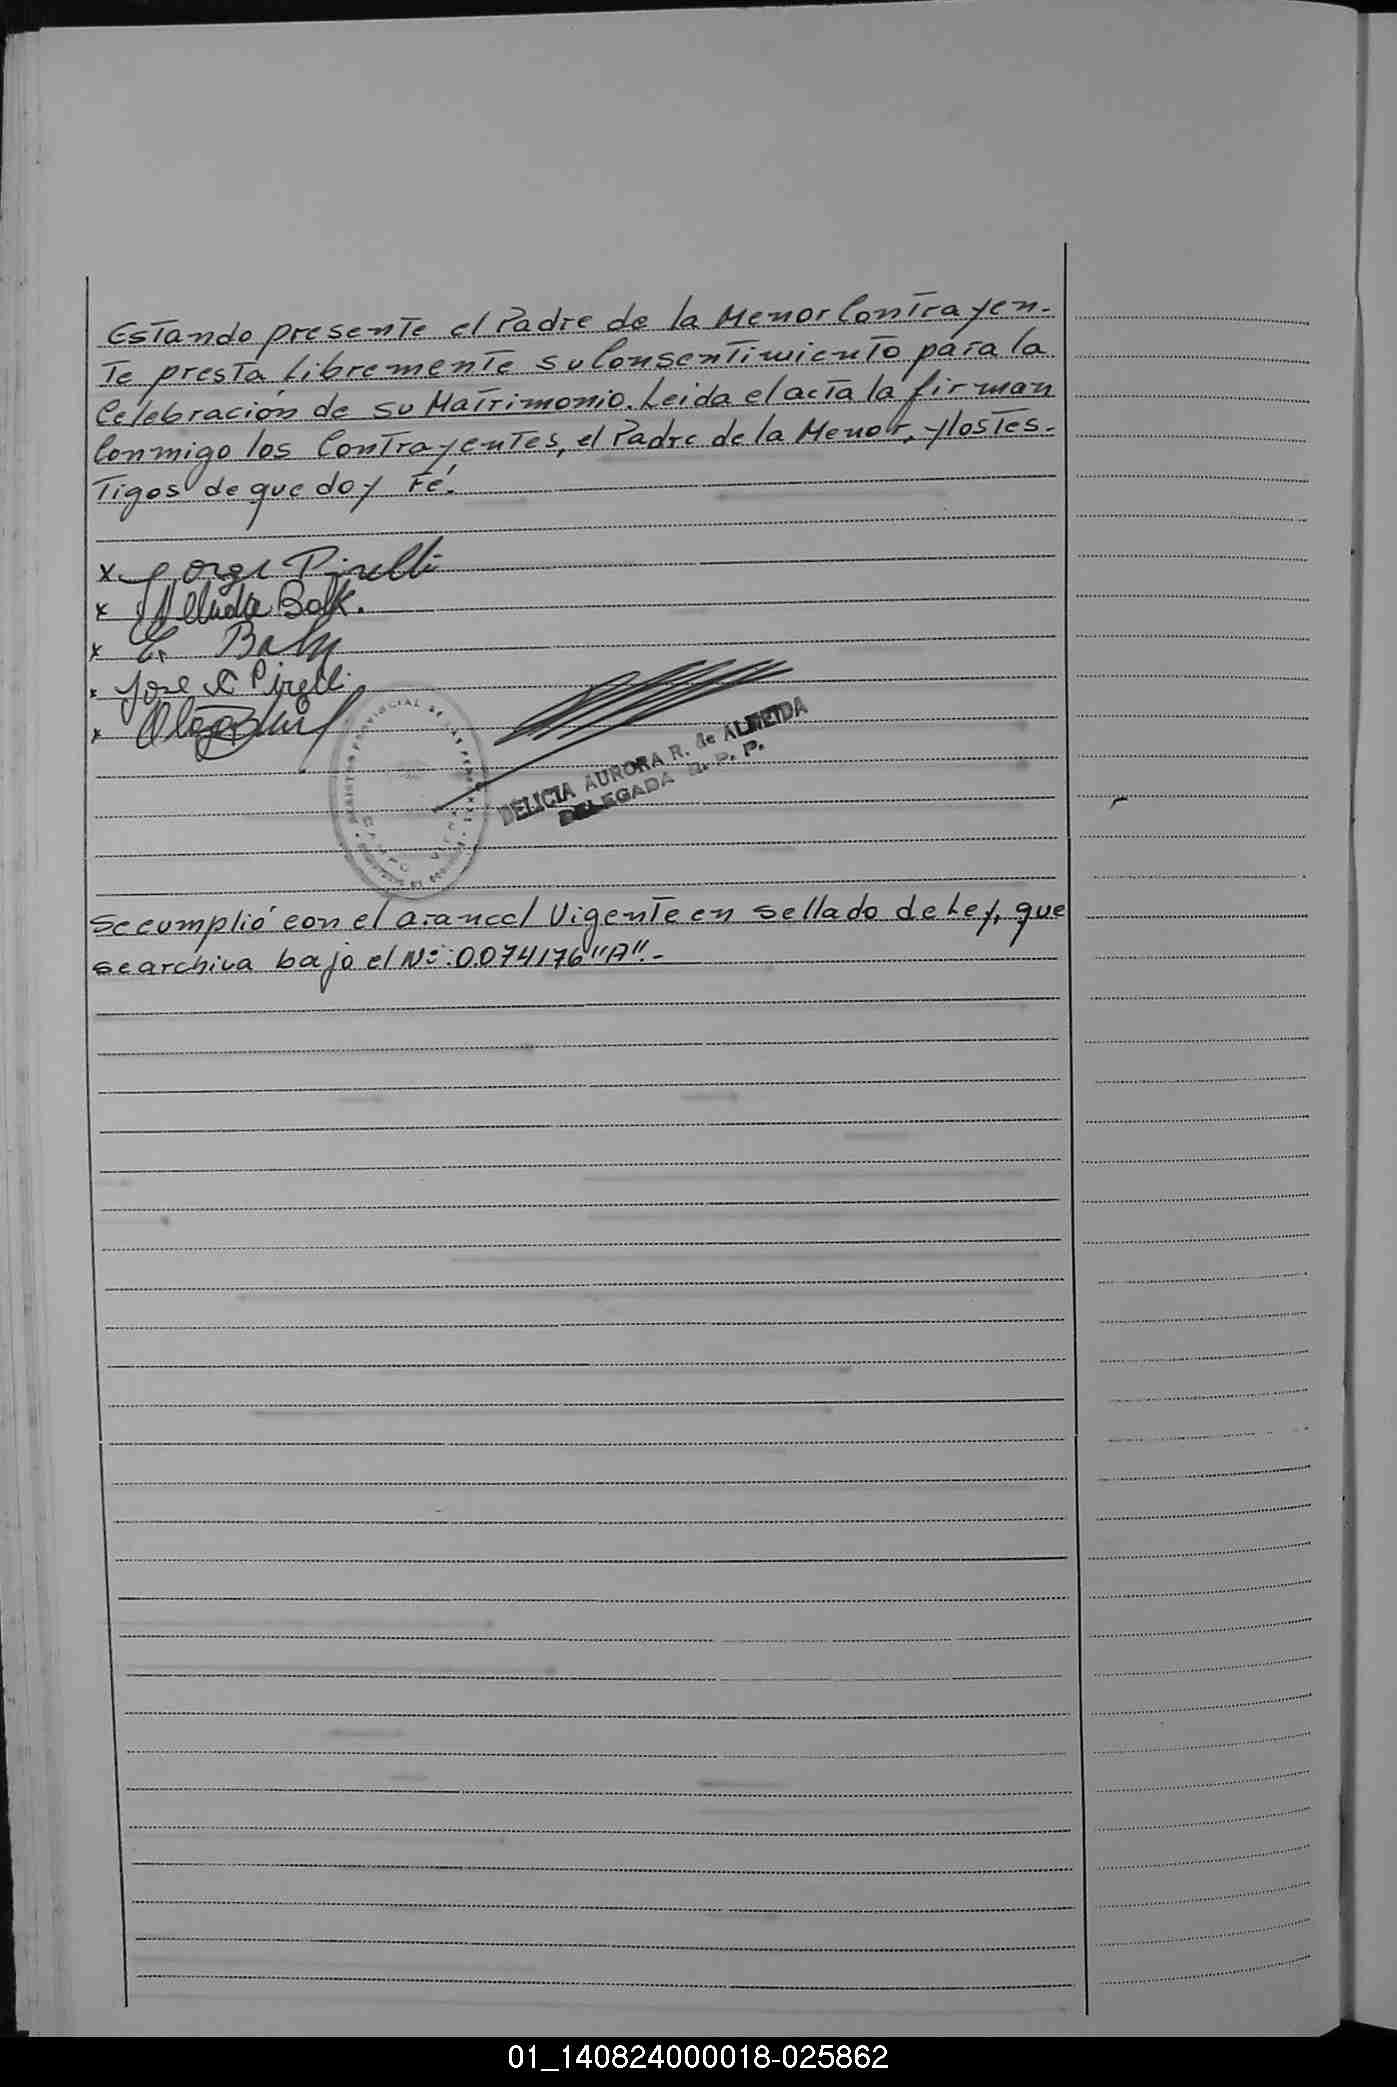 Estando presente el Padre de la Menor Contrayen-
te presta libremente su Consentimiento para la
Celebración de su Matrimonio. Leida el acta la firman
Conmigo los Contrayentes, el Padre de la Menor, y los Tes-
Tigos de que doy Fé.
x Jorge Pirelli
x Balk.
x E.
x Jose Pirelli
x
REGISTRO PROVINCIAL DE LAS PERSONAS
DELICIA AURORA R. de ALMEIDA
DELEGADA R. P. P.
Se cumplió con el arancel Vigente en sellado de Ley, que
se archiva bajo el Nº: 0074176 "A".-
01_140824000018-025862